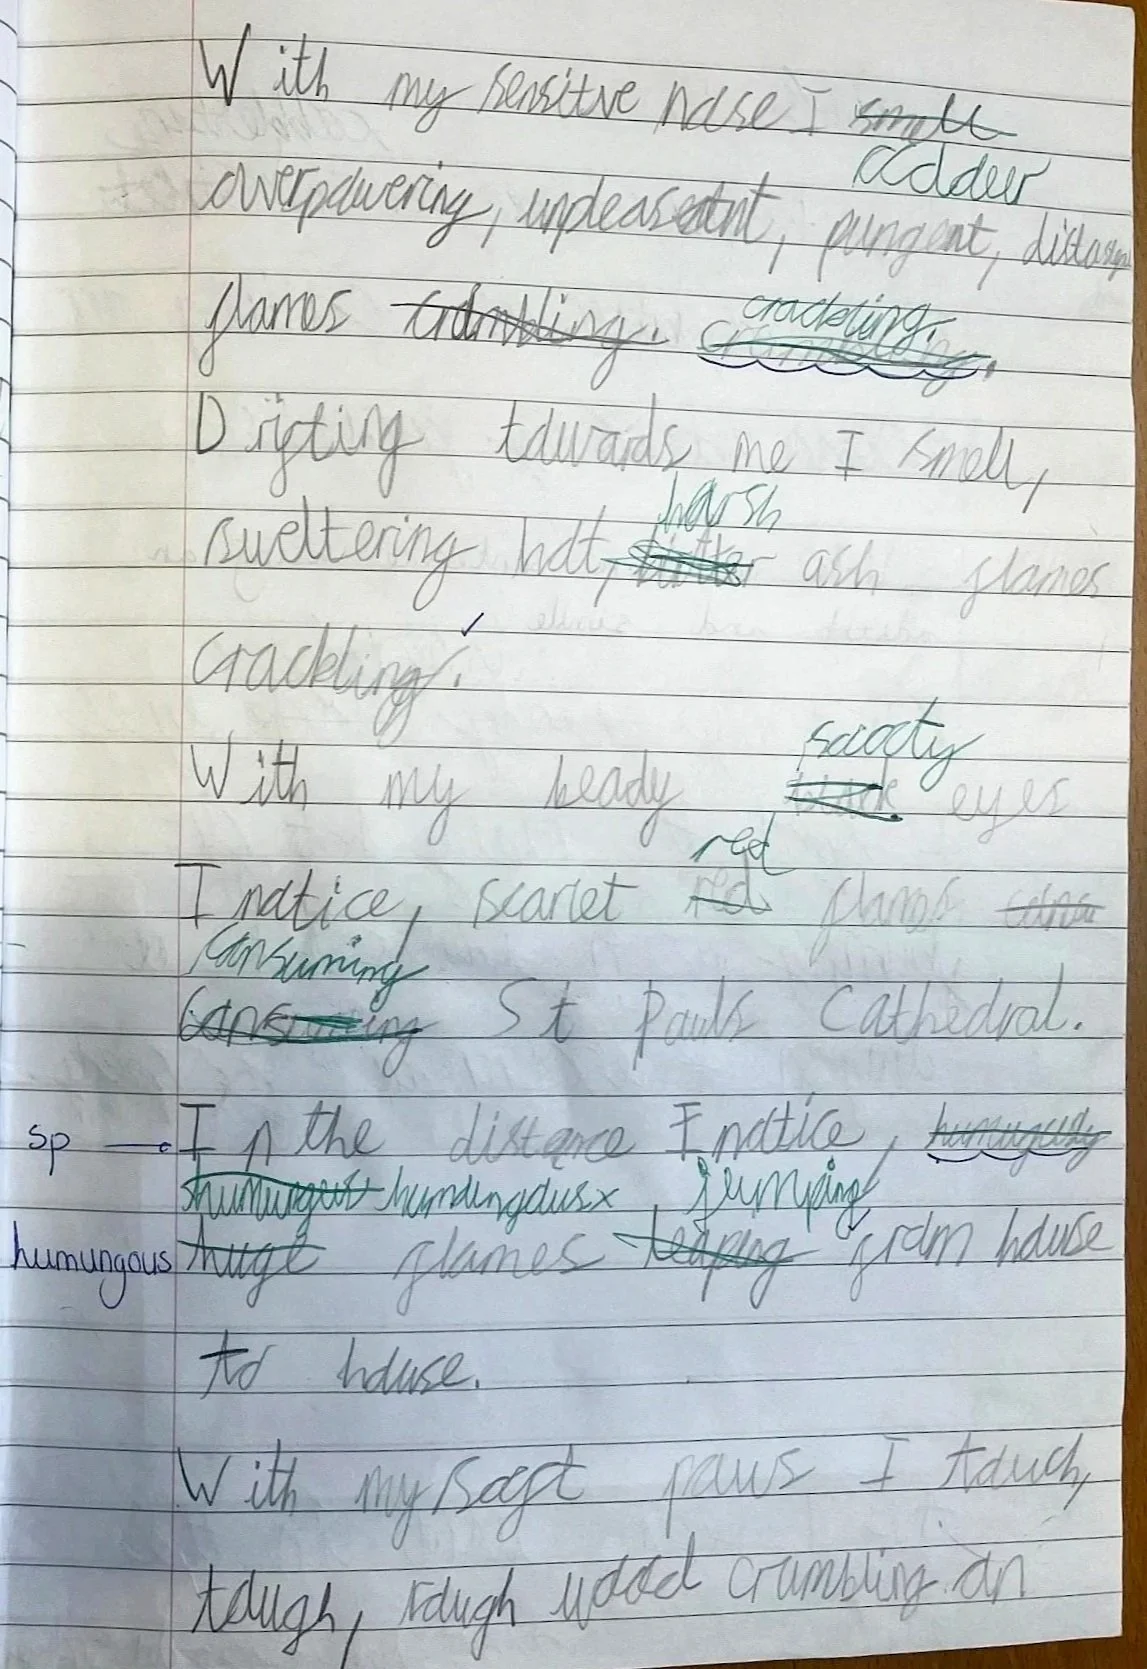 With my sensitve nose I smell
oddeur
overpowering, unpleasent, pungent,
flames crumbling. crackling.
Drifting towards me I smell,
harsh
sweltering hot, bitter ash flames
crackling.
sooty
With my beady black eyes
red
I notice, scarlet red flames
consuming
consuming St Pauls Cathedral.
sp In the distance I notice, humungously
humungous humungous x jumping
humungous huge flames leaping from house
to house.
With my soft paws I touch,
tough, rough wood crumbling on